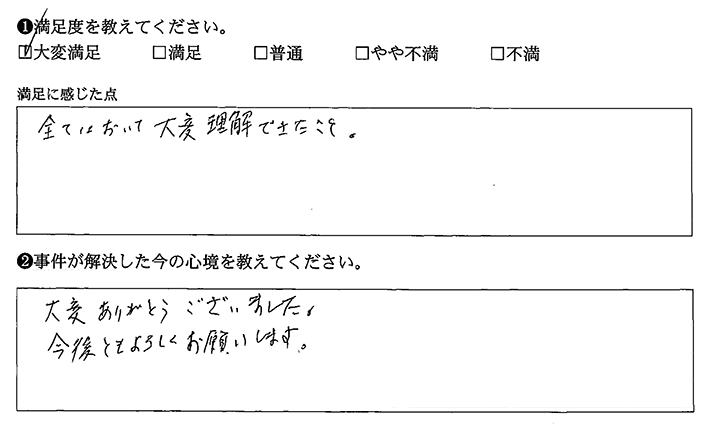 ❶満足度を教えてください。
☑大変満足 □満足 □普通 □やや不満 □不満
満足に感じた点
全てにおいて大変理解できたこと。
❷事件が解決した今の心境を教えてください。
大変ありがとうございました。
今後ともよろしくお願いします。